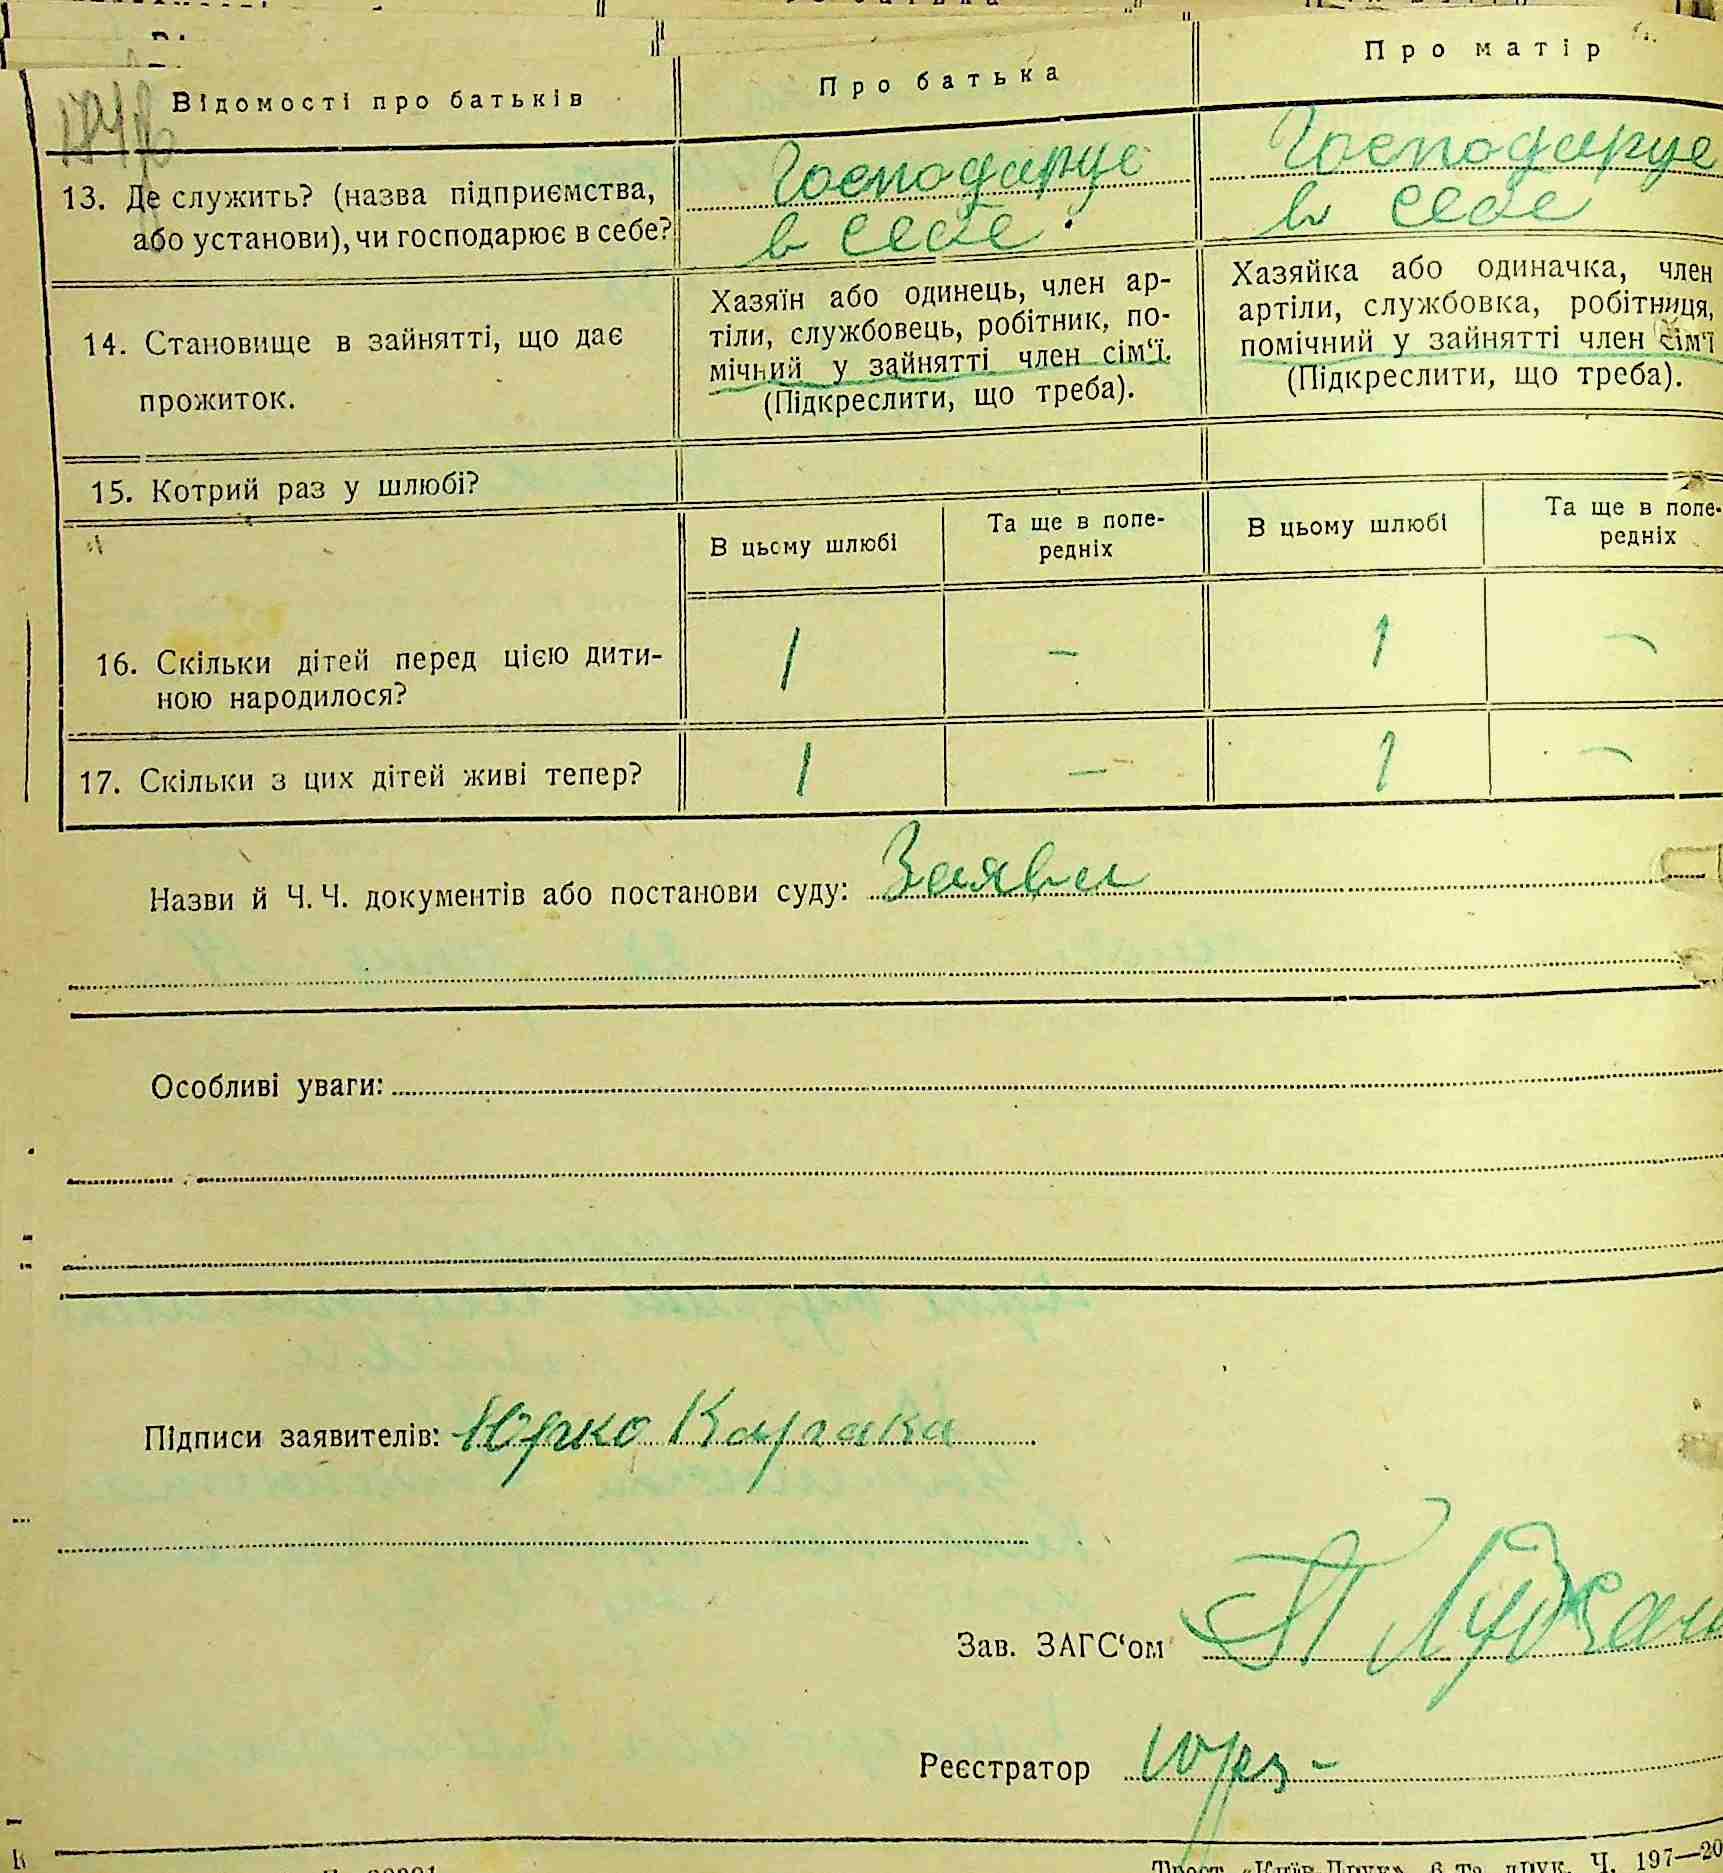 Відомості про батьків
Про батька
Про матір
13. Де служить? (назва підприємства,
або установи), чи господарює в себе?
Господарує
в себе.
Господарує
в себе
14. Становище в зайнятті, що дає
прожиток.
Хазяїн або одинець, член ар-
тіли, службовець, робітник, по-
мічний у зайнятті член сім'ї.
(Підкреслити, що треба).
Хазяйка або одиначка, член
артіли, службовка, робітниця,
помічний у зайнятті член сім'ї
(Підкреслити, що треба).
15. Котрий раз у шлюбі?
В цьому шлюбі
Та ще в попе-
редніх
В цьому шлюбі
Та ще в попе-
редніх
16. Скільки дітей перед цією дити-
ною народилося?
1 – 1 –
17. Скільки з цих дітей живі тепер?
1 – 1 –
Назви й Ч. Ч. документів або постанови суду: Заява
Особливі уваги:
Підписи заявителів: Юрко
Зав. ЗАГС'ом
Реєстратор
Трест «Київ-Друк», 6 та друк. Ч. 197—20